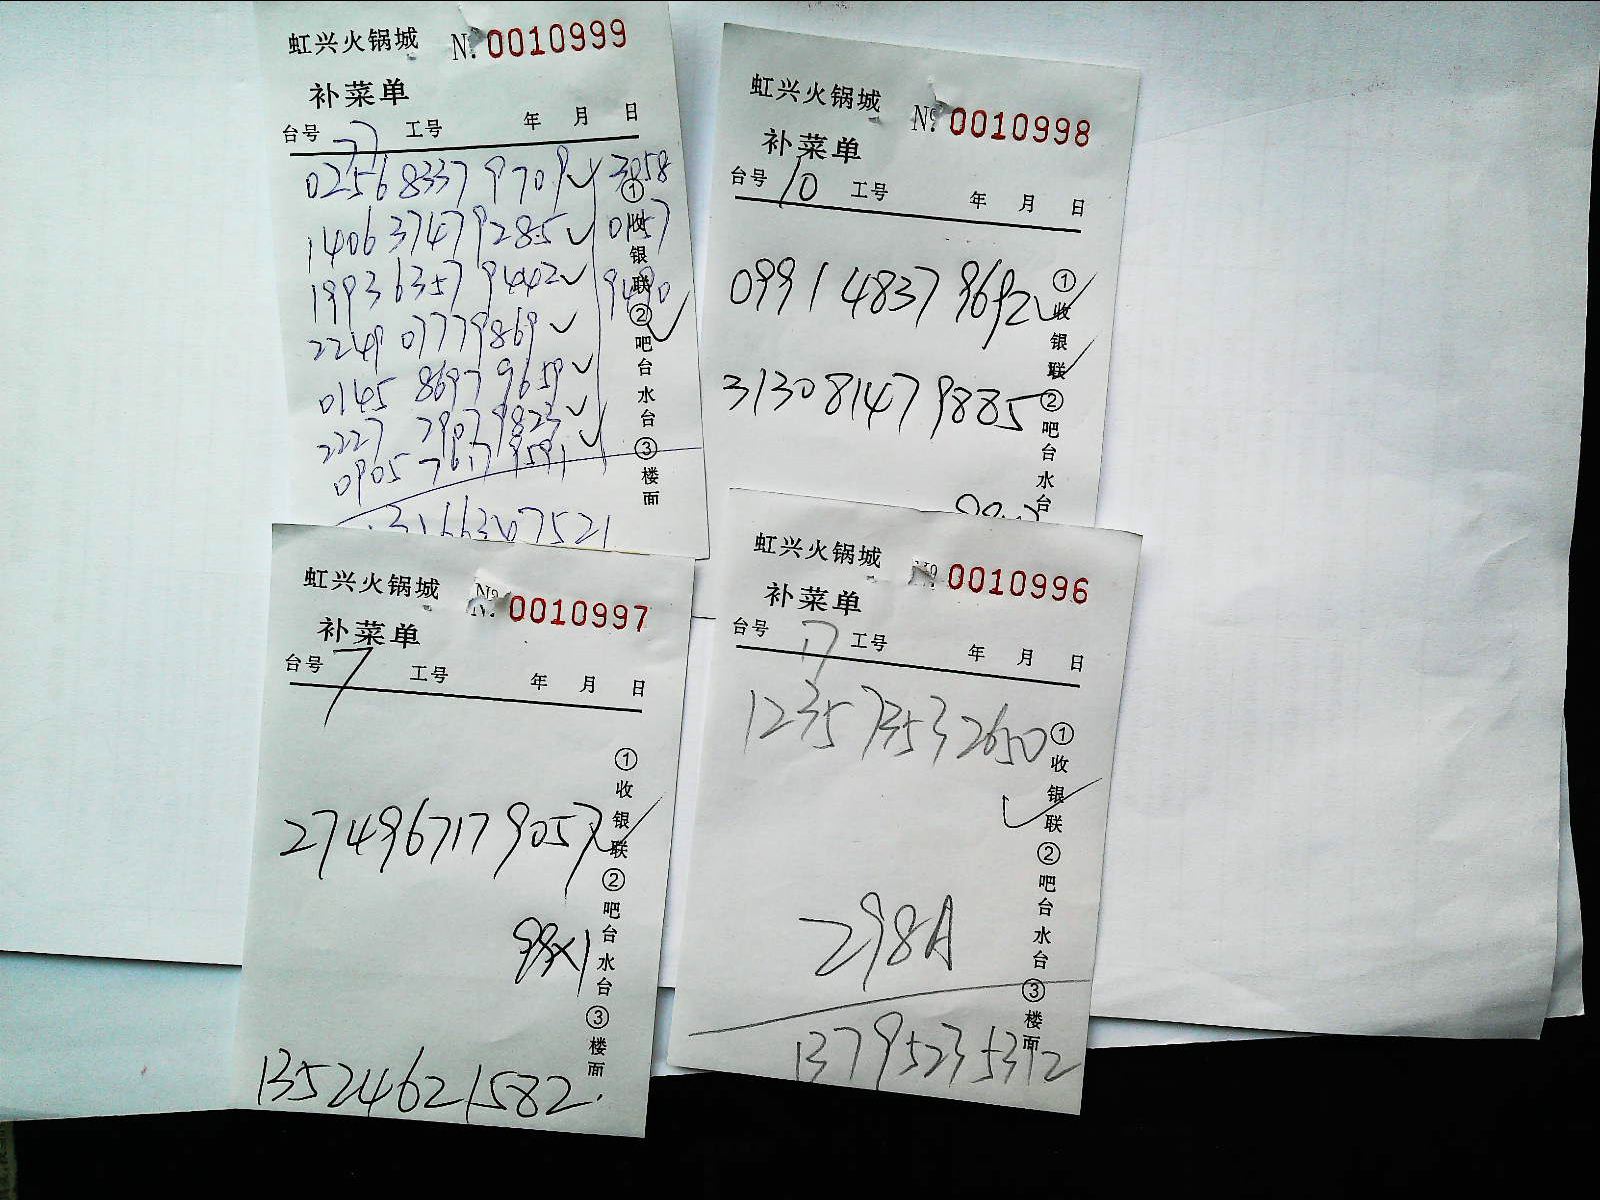 虹兴火锅城 No. 0010999
补菜单
台号 77 工号 年 月 日
0256 8337 9709 ✓ 3058
1406 3747 9285 ✓ 0157
1993 6357 9442 ✓ 9490 ✓
2249 0777 9869 ✓
0145 8697 9659 ✓
2227 7907 9823 ✓
0905 7617 9591 ✓
①收银联②吧台水台③楼面
虹兴火锅城 No. 0010998
补菜单
台号 10 工号 年 月 日
0991 4837 9692 ✓
3130 8147 9885 ✓
①收银联②吧台水台
虹兴火锅城 No. 0010997
补菜单
台号 7 工号 年 月 日
2749 6717 9057 ✓
98×1
13524621582.
①收银联②吧台水台③楼面
虹兴火锅城 No. 0010996
补菜单
台号 17 工号 年 月 日
1235 7353 2650
✓
298A
13795235392
①收银联②吧台水台③楼面